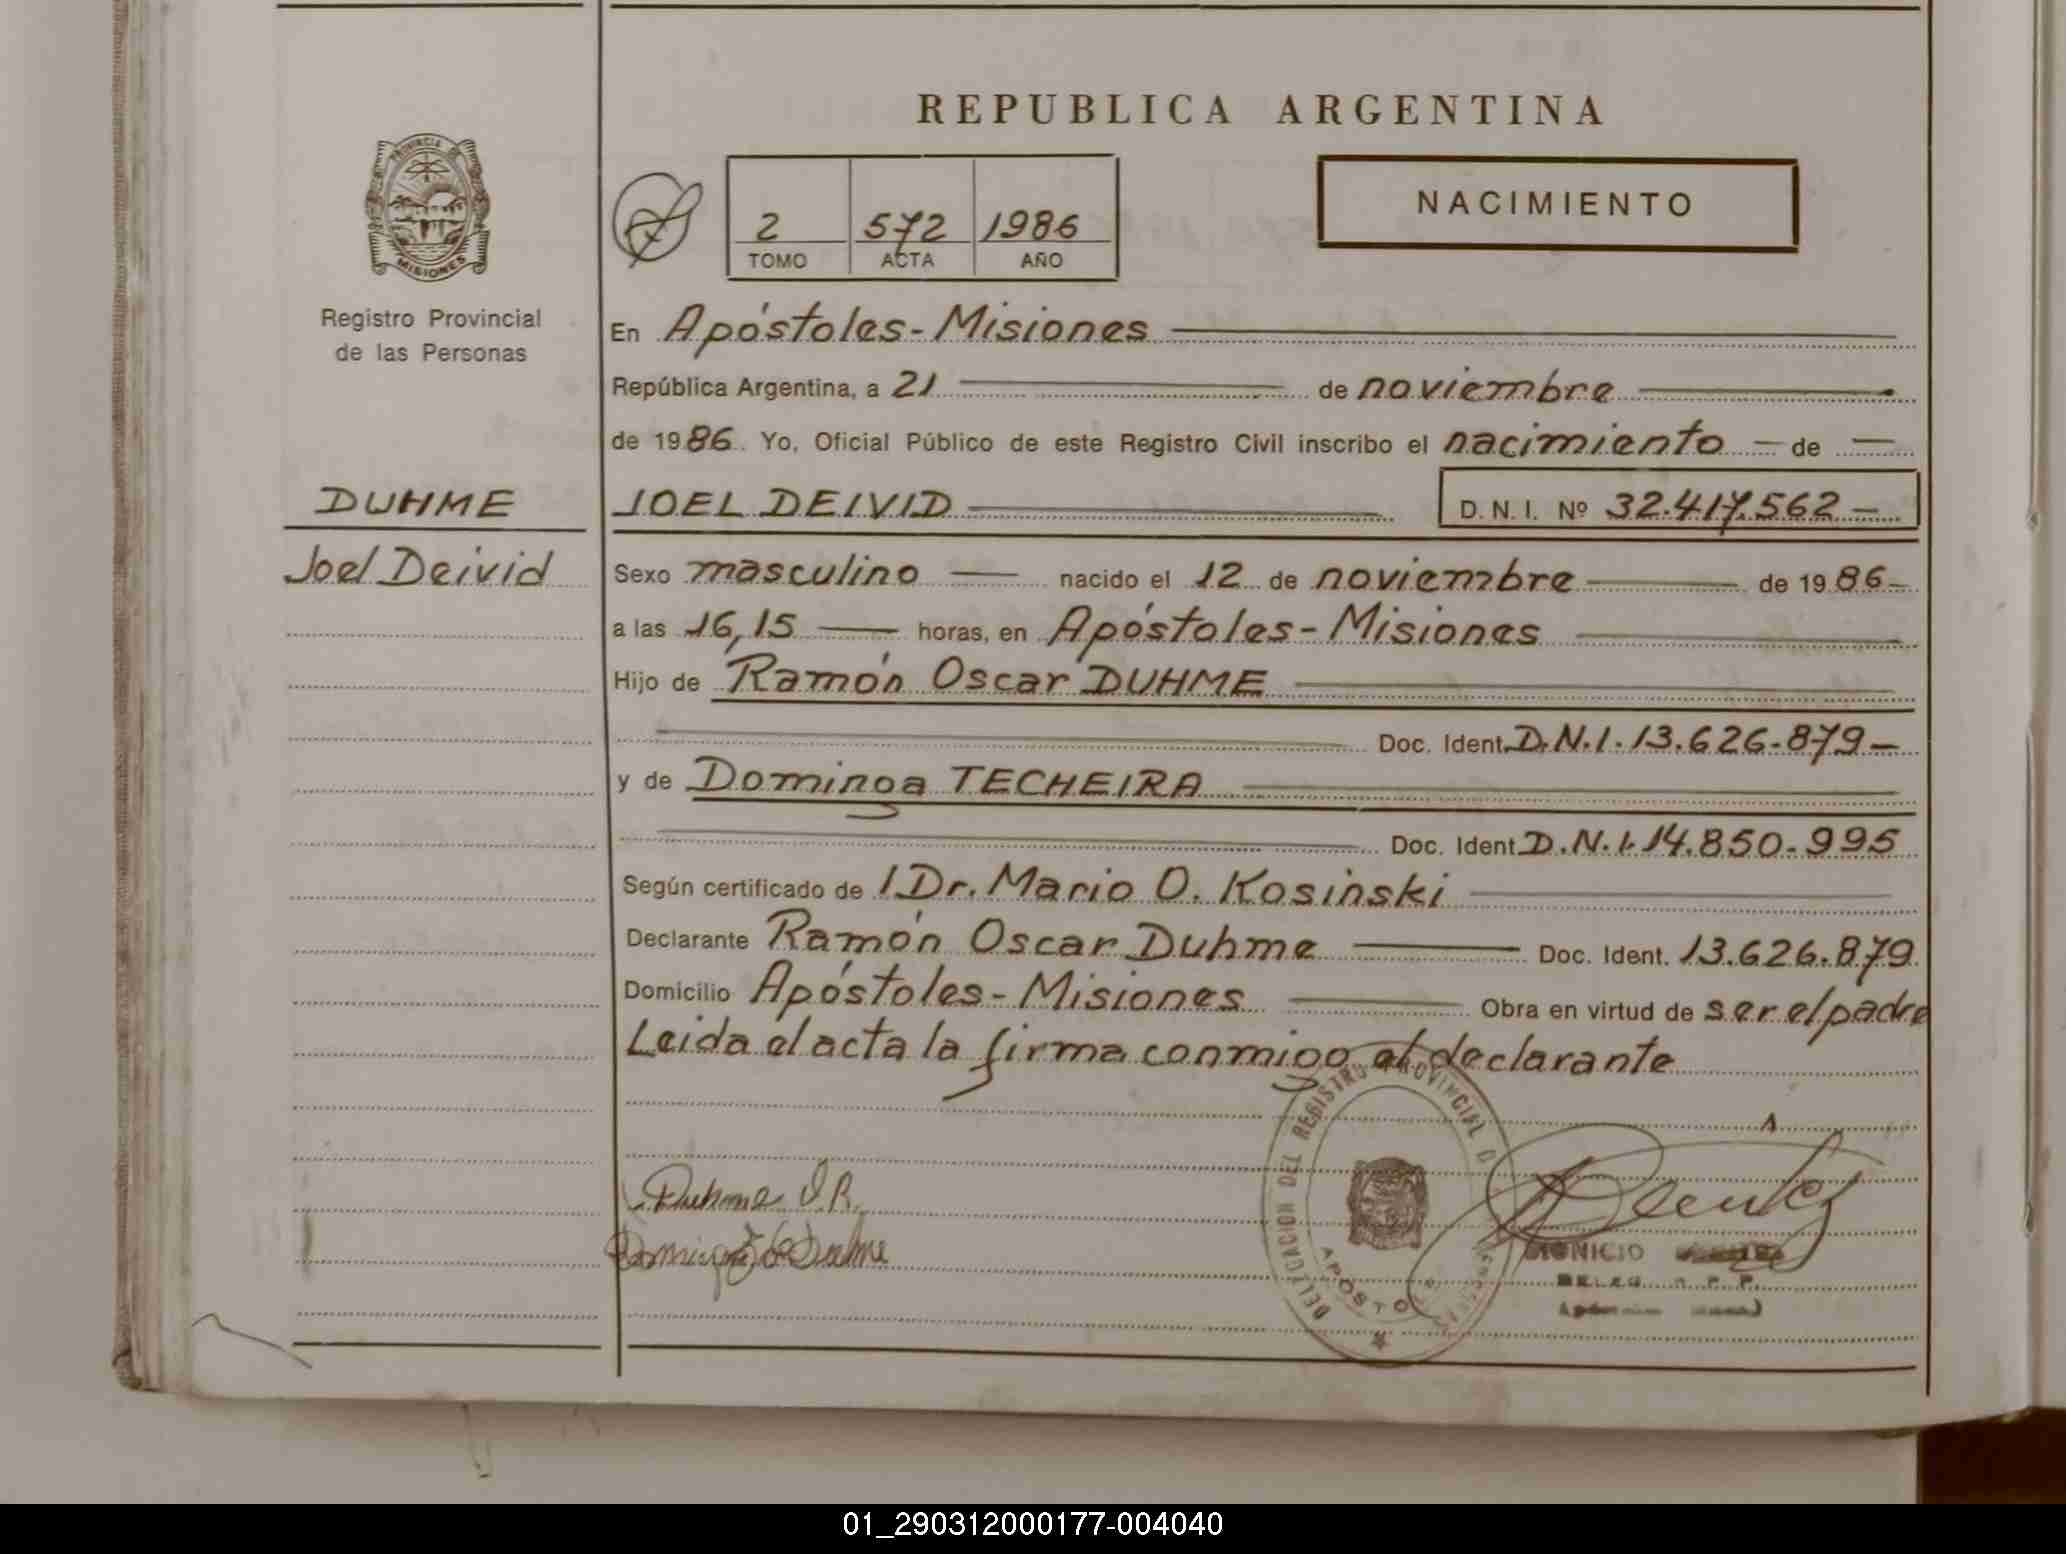 REPUBLICA ARGENTINA
PROVINCIA DE
MISIONES
Registro Provincial
de las Personas
2 572 1986
TOMO ACTA AÑO
NACIMIENTO
En Apóstoles - Misiones
República Argentina, a 21 de noviembre
de 1986. Yo, Oficial Público de este Registro Civil inscribo el nacimiento de
DUHME
Joel Deivid
JOEL DEIVID D. N. I. Nº 32.417.562
Sexo masculino nacido el 12 de noviembre de 1986
a las 16,15 horas, en Apóstoles - Misiones
Hijo de Ramón Oscar DUHME
Doc. Ident. D.N.I. 13.626.879
y de Dominga TECHEIRA
Doc. Ident. D.N.I. 14.850.995
Según certificado de l Dr. Mario O. Kosinski
Declarante Ramón Oscar Duhme Doc. Ident. 13.626.879
Domicilio Apóstoles - Misiones Obra en virtud de ser el padre
Leida el acta la firma conmigo el declarante
Duhme O.R.
DELEGACION DEL REGISTRO PROVINCIAL D
APOSTO
DIONICIO
01_290312000177-004040